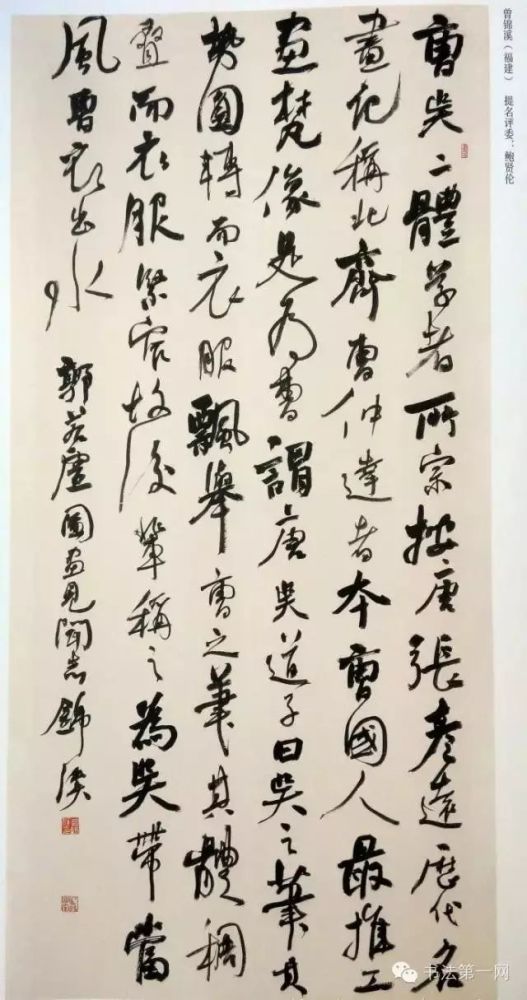 曾锦溪（福建）　提名评委：鲍贤伦
曹吴二體学者所宗按唐張彦遠歷代名
畫記稱北齊曹仲達者本曹國人最推工
画梵像是为曹謂唐吴道子曰吴之筆其
势圓轉而衣服飄舉曹之筆其體稠
疊而衣服緊窄故後輩稱之為吴帶當
風曹衣出水
郭若虛圖画見聞志錦溪
书法第一网